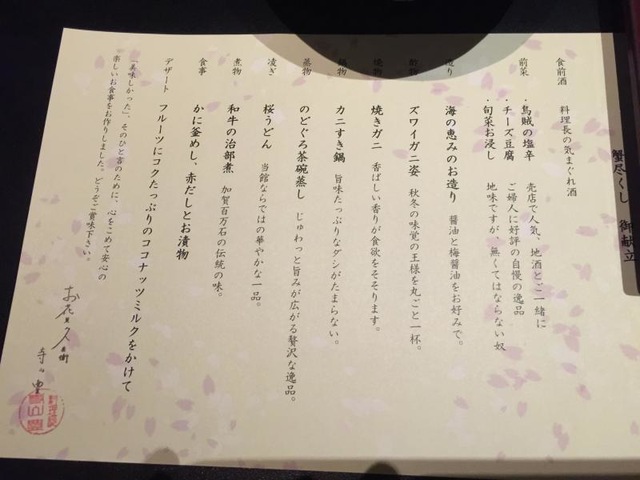 蟹尽くし 御献立
食前酒 料理長の気まぐれ酒
前菜 ・烏賊の塩辛 売店で人気、地酒とご一緒に
・チーズ豆腐 ご婦人に好評の自慢の逸品
・旬菜お浸し 地味ですが、無くてはならない奴
海の恵みのお造り 醤油と梅醤油をお好みで。
酢物 ズワイガニ姿 秋冬の味覚の王様を丸ごと一杯。
焼物 焼きガニ 香ばしい香りが食欲をそそります。
鍋物 カニすき鍋 旨味たっぷりなダシがたまらない。
蒸物 のどぐろ茶碗蒸し じゅわっと旨みが広がる贅沢な逸品。
凌ぎ 桜うどん 当館ならではの華やかな一品。
煮物 和牛の治部煮 加賀百万石の伝統の味。
食事 かに釜めし、赤だしとお漬物
デザート フルーツにコクたっぷりのココナッツミルクをかけて
「美味しかった」、そのひと言のために、心をこめて安心の
楽しいお食事をお作りしました。どうぞご賞味下さい。